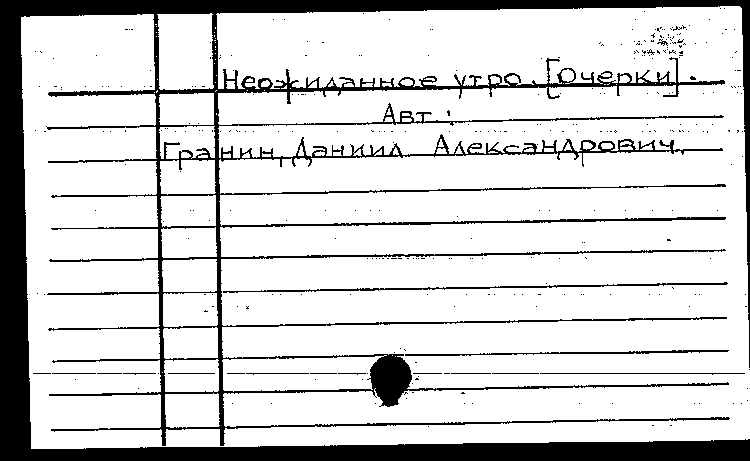 Неожиданное утро. [Очерки].
Авт.:
Гранин, Даниил Александрович.